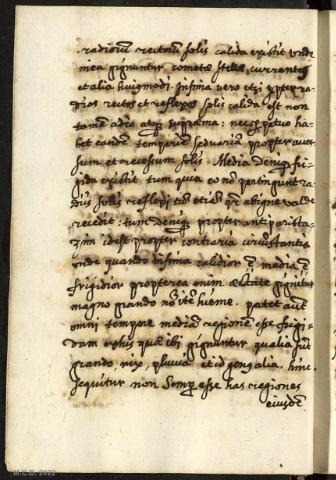 radiorum rectorum solis calida existit unde
in ea gignuntur cometæ stellæ currentes
et alia huiusmodi Infima vero etsi propter ra-
dios rectos et reflexos solis calida est non
tamen adeo atque supræma: neque perpetuo ha-
bet eandem temperiem sed varia propter acces-
sum et recessum solis. Media denique fri-
gida existit tum quia eo non pertingunt ra-
dii solis reflexi tum etiam quia ab igne valde
recedit: tum denique propter antiparista-
sim idest propter contraria circumstantia
unde quando infima calidior est media est
frigidior propterea enim æstate gignitur
magno grando non item hieme. patet autem
omni tempore mediam regionem esse frigi-
dam ex his quæ ibi gignuntur qualia sunt
grando, nix, pluvia et id genus alia. hinc
sequitur non semper esse has regiones
eiusdem
M.C.D. 2022